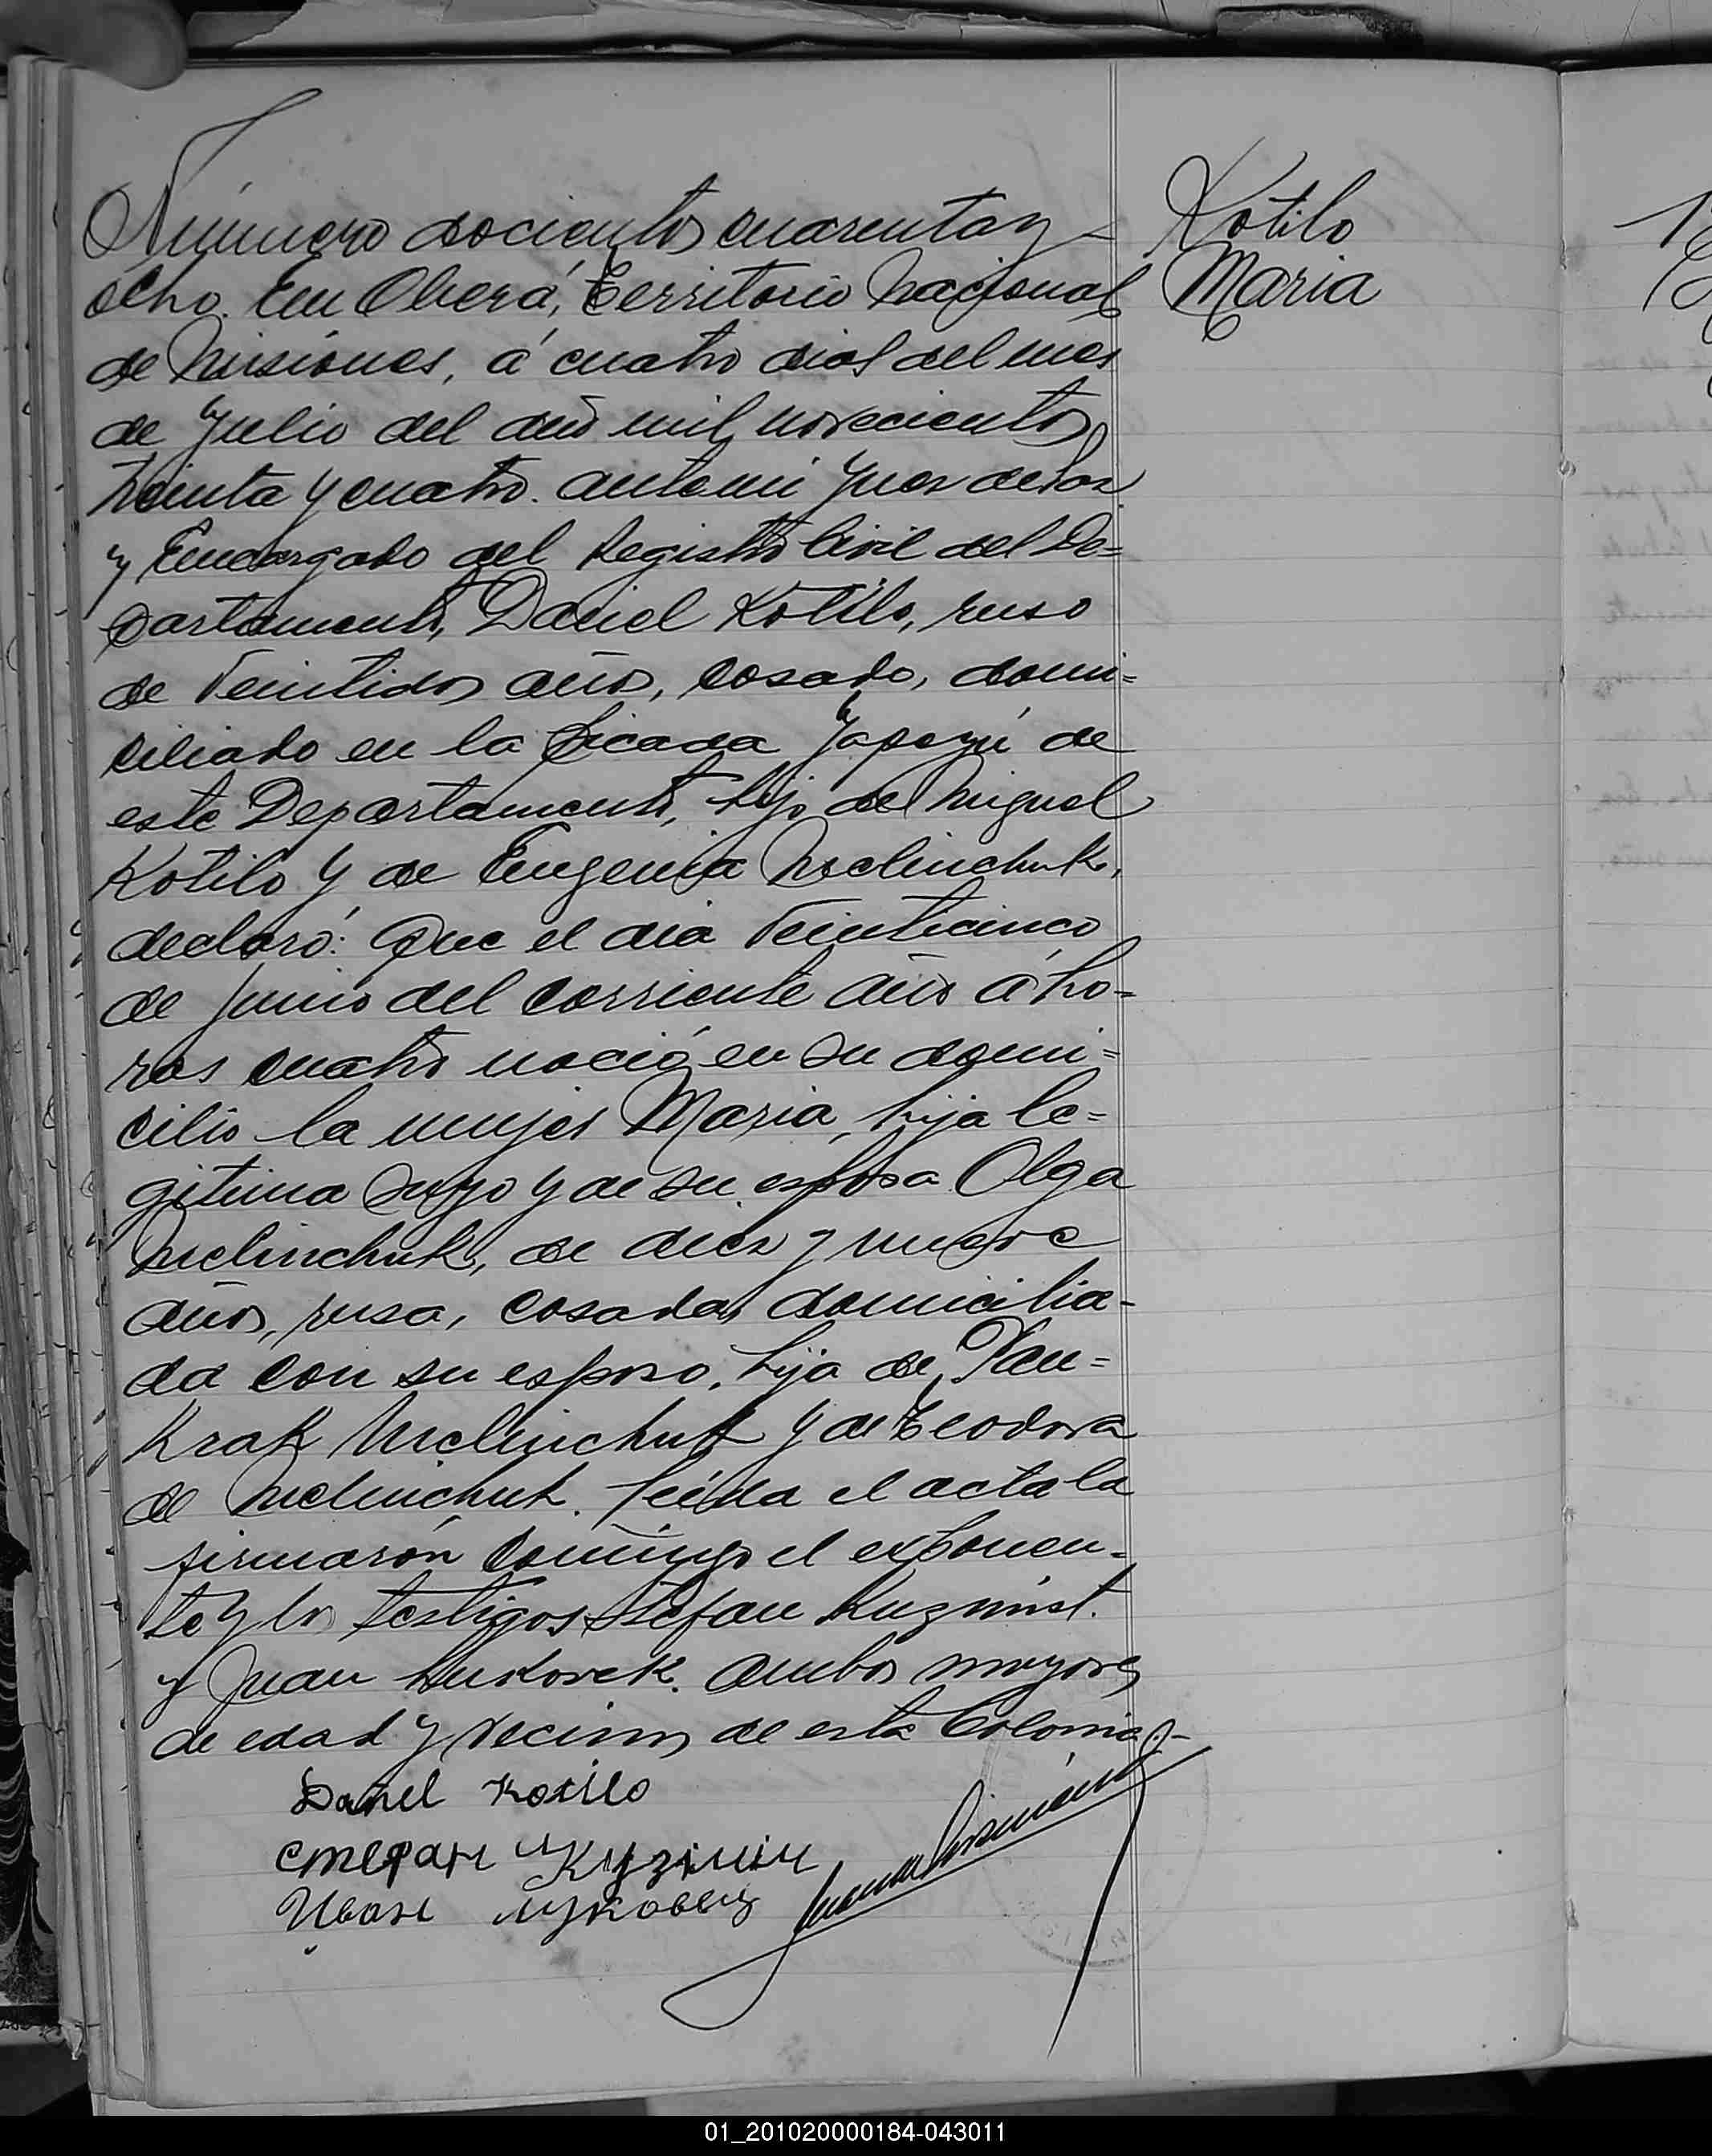 Kotilo
Maria
Número docientos cuarenta y
ocho. En Oberá, Territorio Nacional
de Misiones, á cuatro dias del mes
de Julio del año mil novecientos
treinta y cuatro. ante mi Juez de Paz
y Encargado del Registro Civil del De=
partamento, Daniel Kotilo, ruso
de veintidos años, casado, domi=
ciliado en la Picada Yapeyú de
este Departamento, hijo de Miguel
Kotilo y de Eugenia Melinchuk,
declaró: Que el dia veinticinco
de Junio del corriente año á ho-
ras cuatro nació en su domi=
cilio la mujer Maria, hija le=
gitima suya y de su esposa Olga
Melinchuk, de diez y nueve
años, rusa, casada, domicilia-
da con su esposo, hija de Pan=
Krak Melinchuk y de Teodora
de Melinchuk. Leida el acta la
firmarón conmigo el exponen=
te y los testigos Stefan Kuzmist.
y Juan Lukovek. ambos mayores
de edad y vecinos de esta Colonia.-
Daniel Kotilo
Стефан Кузмін
Иван Луковец
01_201020000184-043011